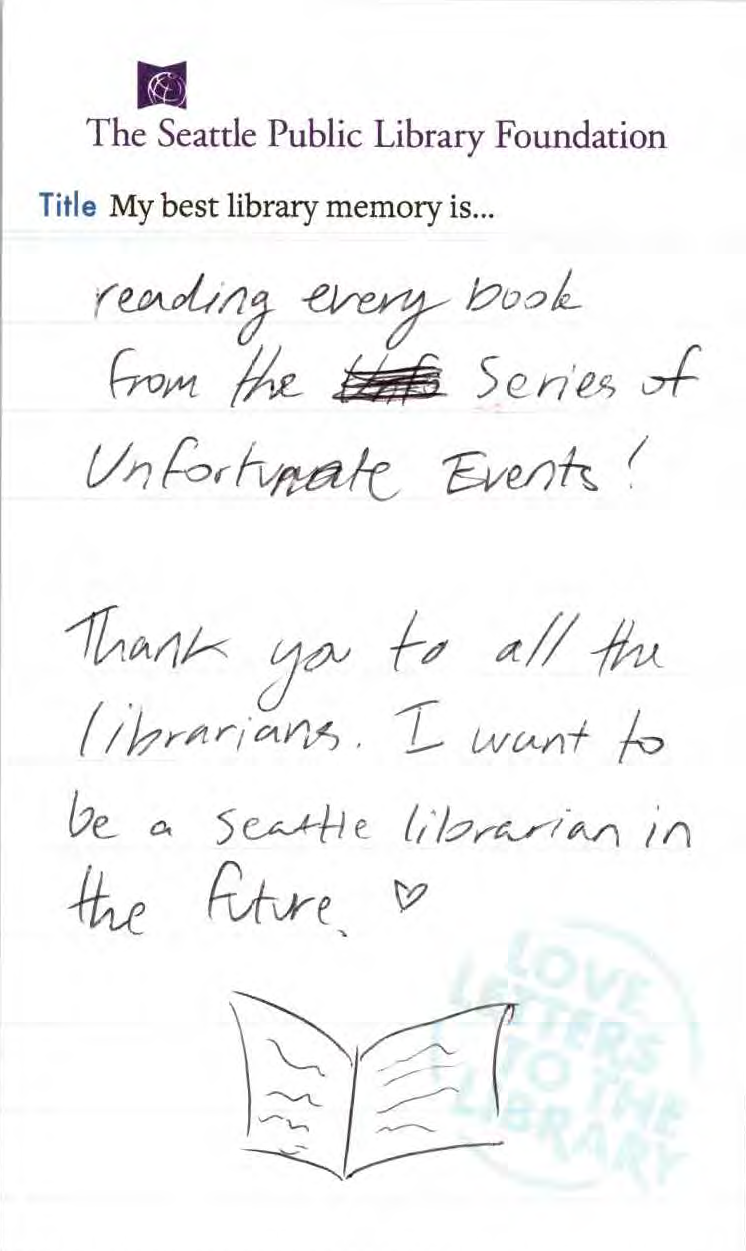 The Seattle Public Library Foundation
Title My best library memory is...
reading every book
from the Series of
Unfortunate Events!
Thank you to all the
librarians. I want to
be a seattle librarian in
the future. ♡
LOVE
LETTERS
TO THE
LIBRARY